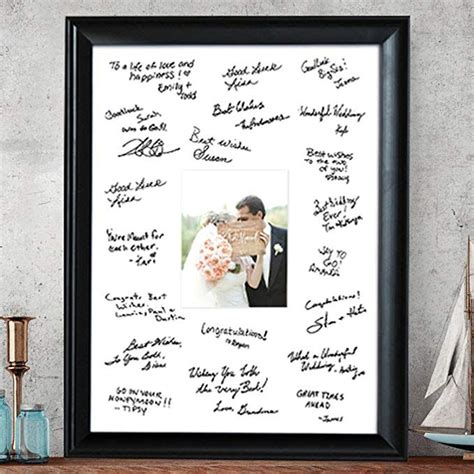 To a life of love and
happiness!
Emily &
Todd
Good Luck
Lisa
Goodluck
Big Sis!
Jenna
Goodluck
Sarah
Best Wishes
Wonderful Wedding
Kyle
Best wishes
Susan
Best wishes
to the two
of you!
Good Luck
Lisa
Best Wedding
Ever!
You're Meant for
each other.
Kari
WAY TO
GO!
Amanda
Congrats Best
Wishes.
Paul &
Dustin
Congratulations!
Congratulations!
Best Wishes,
To you both,
What a Wonderful
Wedding,
Wishing You both
the very Best!
Love, Grandma
GOOD ON YOUR
HONEYMOON!!
- TIPSY
GREAT TIMES
AHEAD
- James